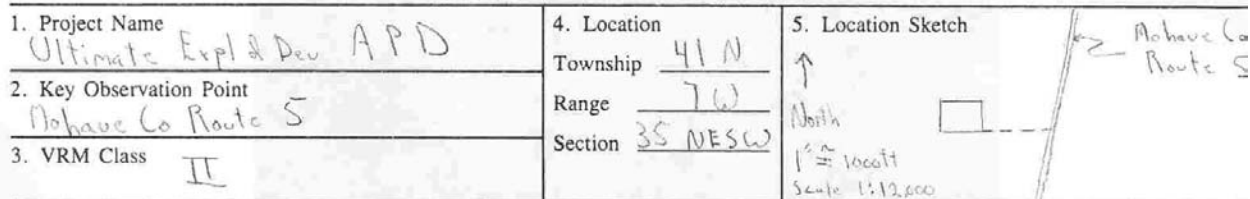 1. Project Name
Ultimate Expl & Dev APD
2. Key Observation Point
Mohave Co Route 5
3. VRM Class
II
4. Location
Township 41 N
Range 7 W
Section 35 NESW
5. Location Sketch
North
1" ≈ 1000ft
Scale 1:12,000
Mohave Co
Route 5